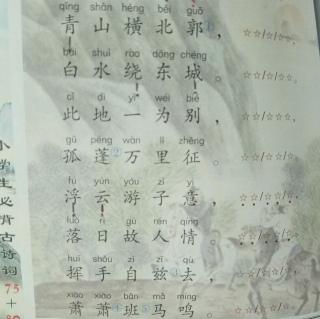 qīng shān héng běi guō
青山横北郭①，☆☆/☆/☆☆，
bái shuǐ rào dōng chéng
白水绕东城。☆☆/☆/☆☆。
cǐ dì yī wéi bié
此地一为别，☆☆/☆☆/☆，
gū péng wàn lǐ zhēng
孤蓬②万里征。☆☆/☆☆/☆。
fú yún yóu zǐ yì
浮云游子意，☆☆/☆☆/☆，
luò rì gù rén qíng
落日故人情。☆☆/☆☆/☆。
huī shǒu zì zī qù
挥手自兹去，
xiāo xiāo bān mǎ míng
萧萧班马鸣。
小学生必背古诗词75+80